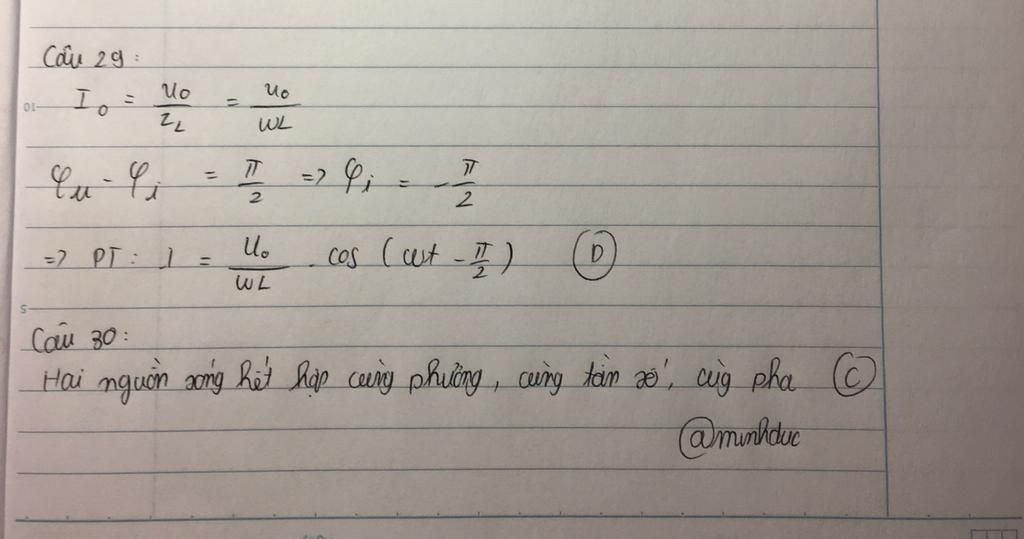 Câu 29:
I₀ = U₀/Z_L = U₀/ωL
φu - φi = π/2 => φi = -π/2
=> PT: I = U₀/ωL . cos (ωt - π/2) D
Câu 30:
Hai nguồn sóng kết hợp cùng phương, cùng tần số, cùg pha C
@minhduc